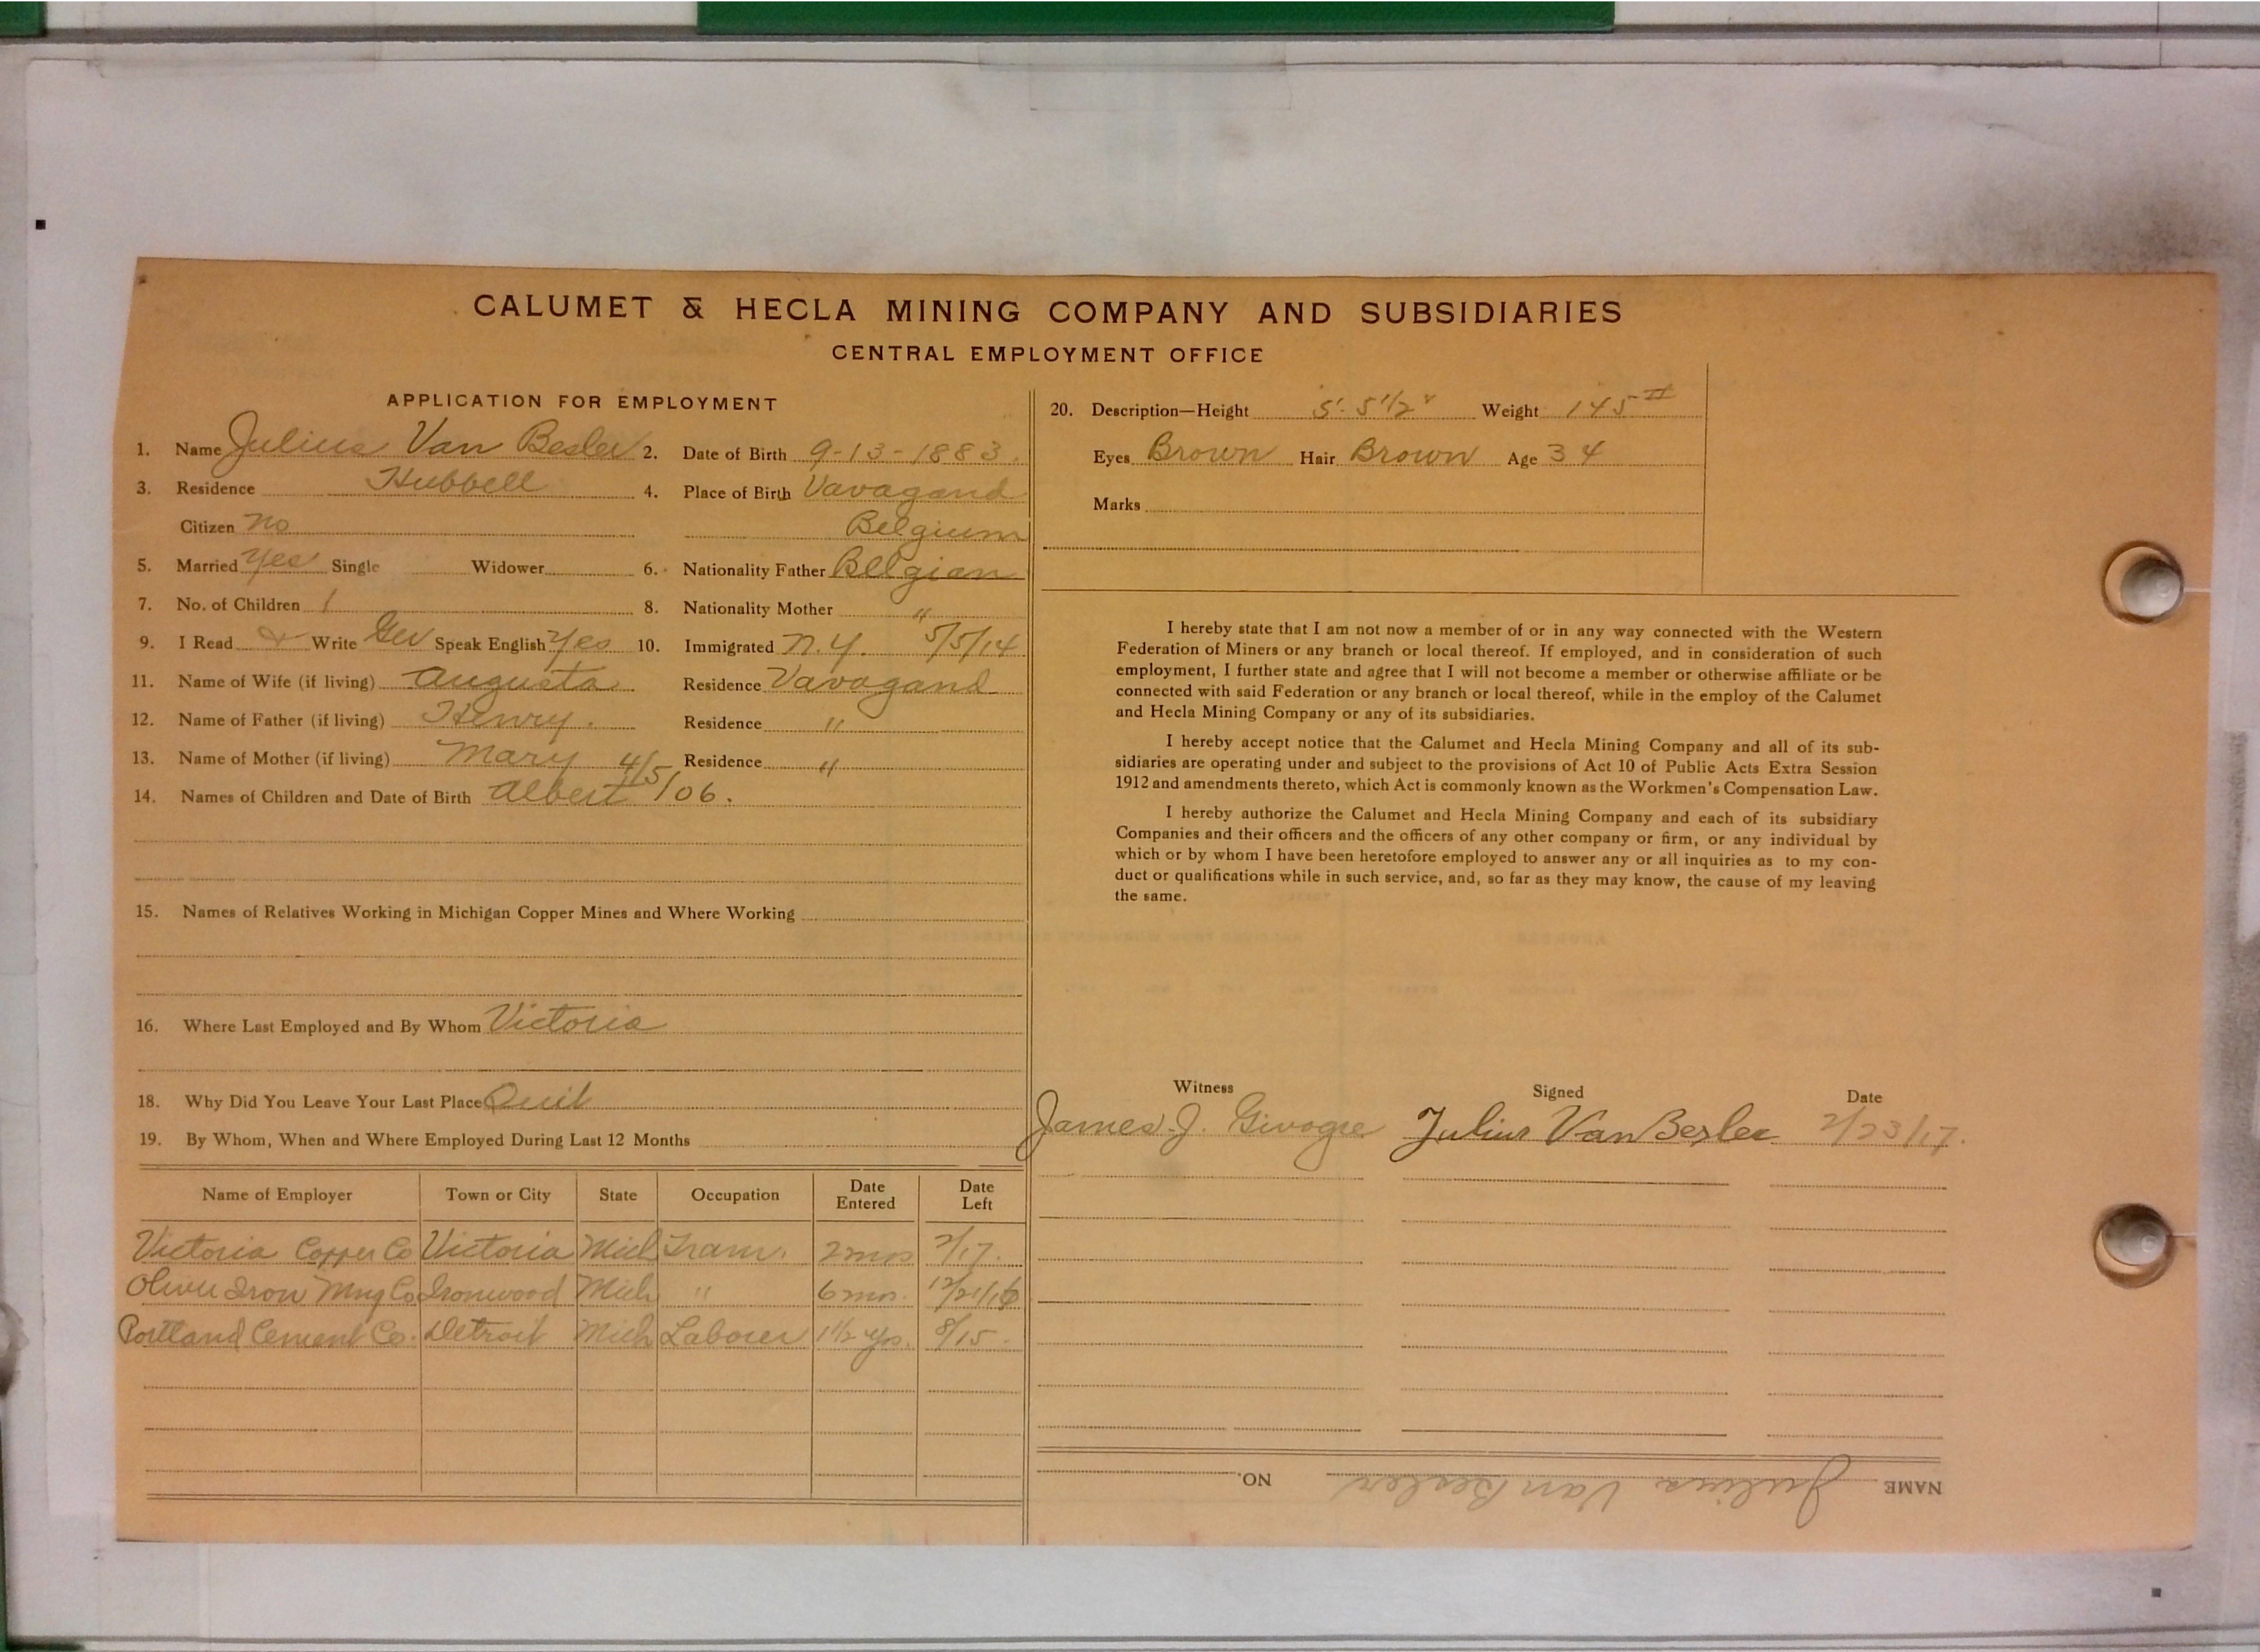 CALUMET & HECLA MINING COMPANY AND SUBSIDIARIES
CENTRAL EMPLOYMENT OFFICE
APPLICATION FOR EMPLOYMENT
1. Name Julius Van Besler 2. Date of Birth 9-13-1883.
3. Residence Hubbell 4. Place of Birth Vavagand
Citizen no Belgium
5. Married Yes Single Widower 6. Nationality Father Belgian
7. No. of Children 1 8. Nationality Mother "
9. I Read & Write Ger Speak English Yes 10. Immigrated N.Y. 5/5/14
11. Name of Wife (if living) Augusta Residence Vavagand
12. Name of Father (if living) Henry. Residence "
13. Name of Mother (if living) Mary Residence "
14. Names of Children and Date of Birth Albert 4/5/06.
15. Names of Relatives Working in Michigan Copper Mines and Where Working
16. Where Last Employed and By Whom Victoria
18. Why Did You Leave Your Last Place Quit
19. By Whom, When and Where Employed During Last 12 Months
Name of Employer Town or City State Occupation Date Entered Date Left
Victoria Copper Co Victoria Mich Tram. 2 mos 2/17.
Oliver Iron Mng Co Ironwood Mich " 6 mos. 12/21/16
Portland Cement Co. Detroit Mich Laborer 1 1/2 yrs. 8/15.
20. Description—Height 5'. 5 1/2" Weight 145 #
Eyes Brown Hair Brown Age 34
Marks
I hereby state that I am not now a member of or in any way connected with the Western
Federation of Miners or any branch or local thereof. If employed, and in consideration of such
employment, I further state and agree that I will not become a member or otherwise affiliate or be
connected with said Federation or any branch or local thereof, while in the employ of the Calumet
and Hecla Mining Company or any of its subsidiaries.
I hereby accept notice that the Calumet and Hecla Mining Company and all of its sub-
sidiaries are operating under and subject to the provisions of Act 10 of Public Acts Extra Session
1912 and amendments thereto, which Act is commonly known as the Workmen's Compensation Law.
I hereby authorize the Calumet and Hecla Mining Company and each of its subsidiary
Companies and their officers and the officers of any other company or firm, or any individual by
which or by whom I have been heretofore employed to answer any or all inquiries as to my con-
duct or qualifications while in such service, and, so far as they may know, the cause of my leaving
the same.
Witness Signed Date
James J. Julius Van Besler 2/23/17.
NAME Julius Van Besler NO.